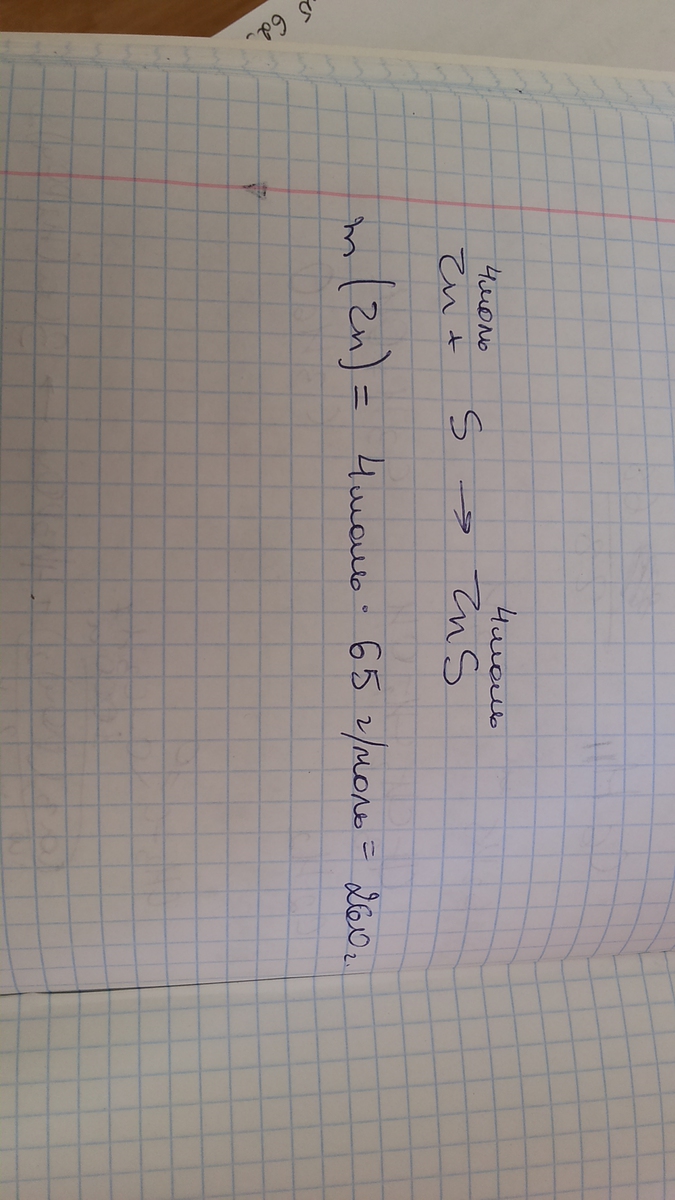 4моль 4моль
Zn + S → ZnS
m (Zn) = 4моль · 65 г/моль = 260г.